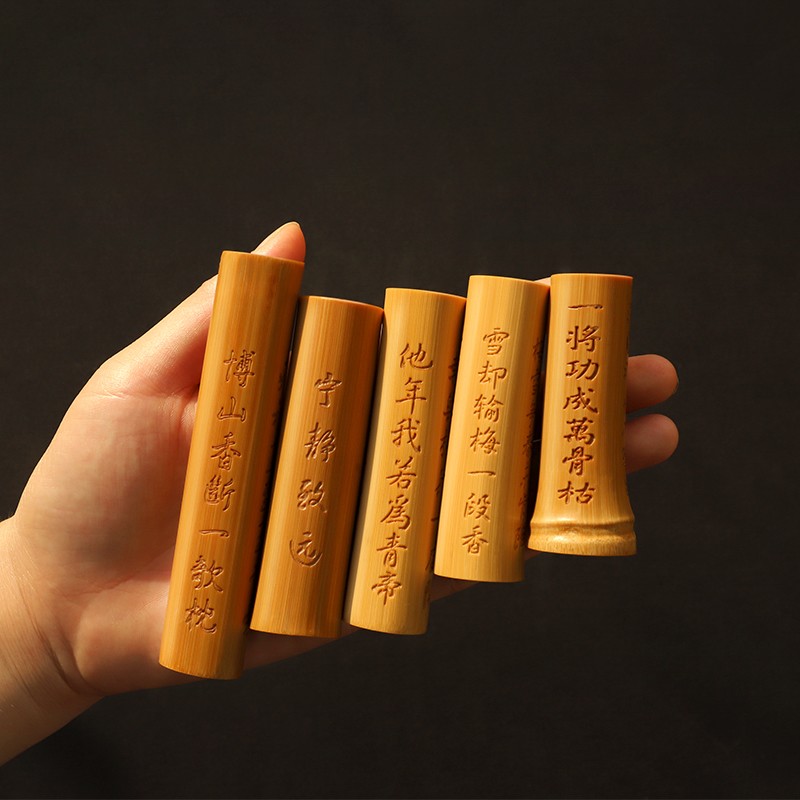 博山香斷一欹枕
宁静致远
他年我若為青帝
雪却输梅一段香
一将功成萬骨枯